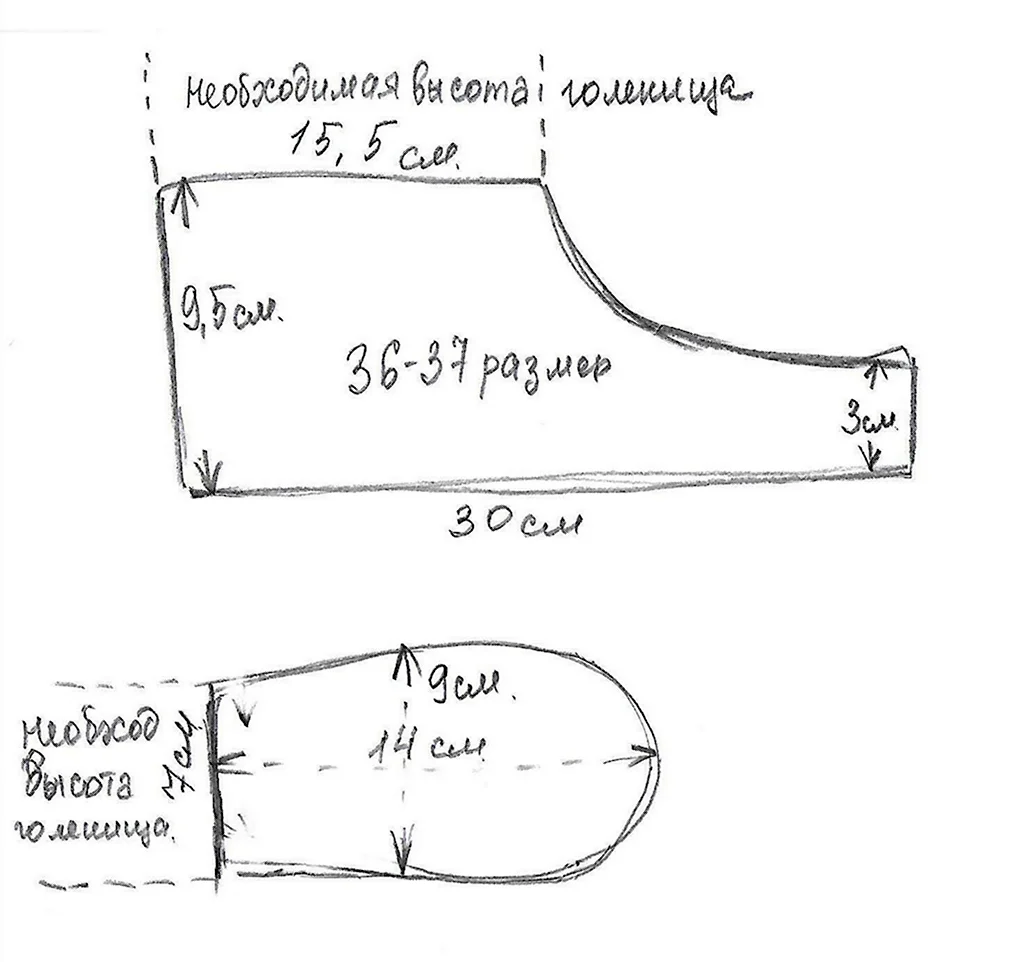 необходимая высота голенища
15,5 см.
9,5 см.
36-37 размер
3 см.
30 см
9 см.
14 см
7 см
необход
высота
голенища.